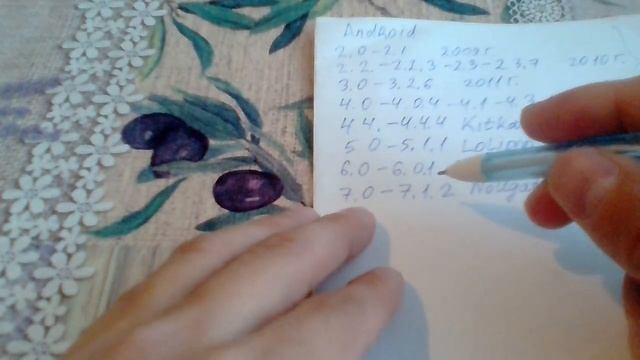 Android
2.0-2.1 2009г.
2.2.-2.2.3-2.3-2.3.7 2010г.
3.0-3.2.6 2011г.
4.0-4.0.4-4.1-4.3
4.4.-4.4.4
5.0-5.1.1
6.0-6.0.1
7.0-7.1.2